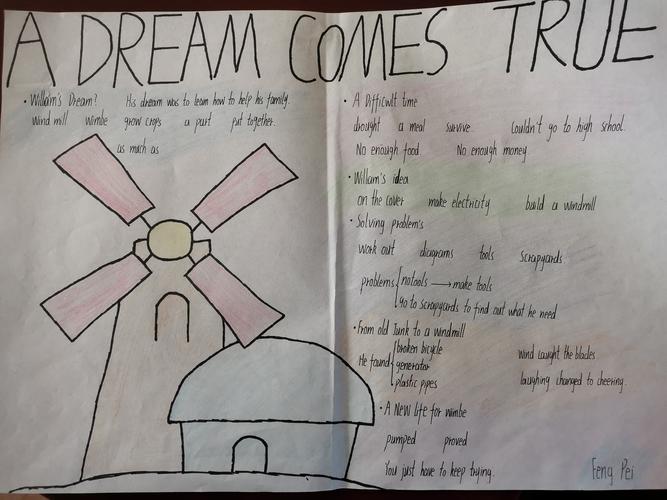 A DREAM COMES TRUE
• William's Dream? His dream was to learn how to help his family.
wind mill wimbe grow crops a part put together.
as much as
• A Difficult time
drought a meal survive. Couldn't go to high school.
No enough food. No enough money
• Willam's idea
on the cover make electricity build a windmill
• Solving problem's
work out diagrams tools Scrapyards
problems notools → make tools
go to scrapyards to find out what he need
• From old Junk to a windmill
He found broken bicycle wind caught the blades
generator
plastic pipes laughing changed to cheering.
• A New life for wimbe
pumped proved
You just have to keep trying.
Feng Pei